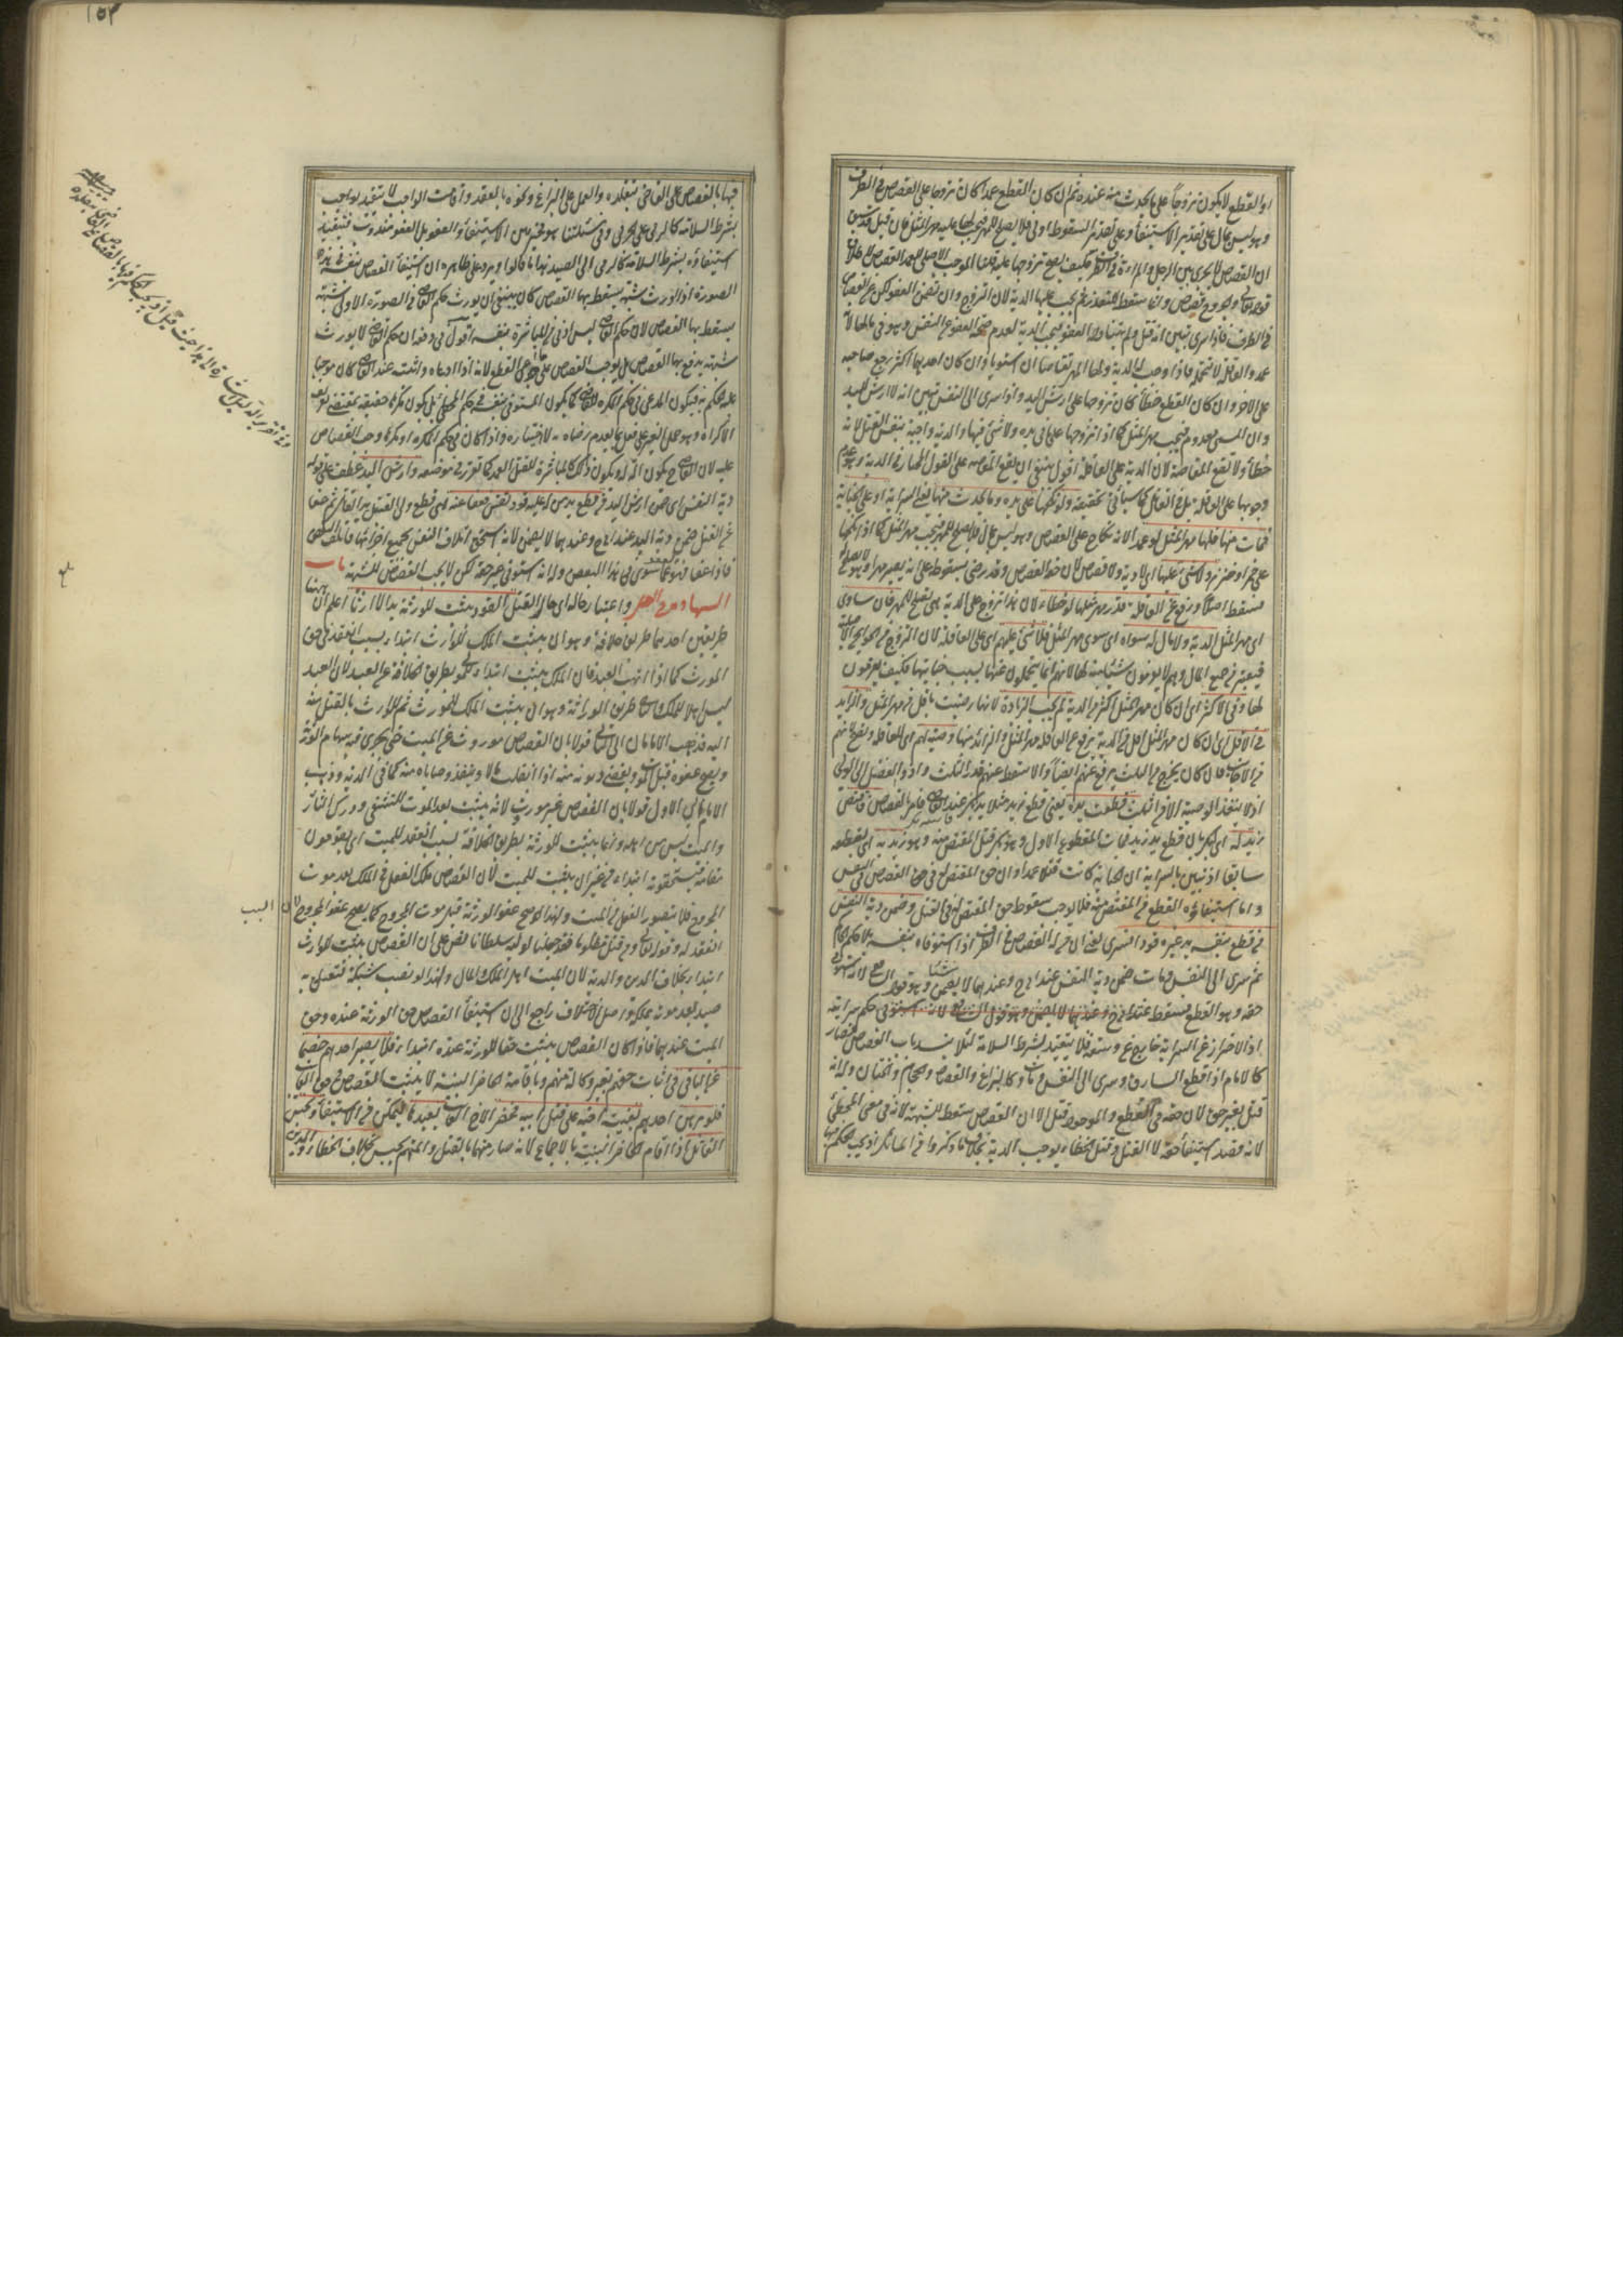 او القطع لا يكون تزوجاً على ما يحدث منه عنده ثم ان كان القطع عمدا كان تزوجا على القصاص في الطرف
وهو ليس بمال على تقدير الاستيفاء وعلى تقدير السقوط اولى فلا يصلح للمهر فيجب لها عليه مهر المثل فان قيل قد سبق
ان القصاص لا يجري بين الرجل والمراة في الطرف فكيف يصح تزوجها عليه قلنا الموجب الاصلي للعمد القصاص لاطلاق
قوله تعالى والجروح قصاص وانما سقط للتعذر ثم يجب عليها الدية لان التزوج وان تضمن العفو لكن عن القصاص
في الطرف فاذا سرى تبين انه قتل ولم يتناوله العفو فتجب الدية لعدم صحة العفو عن النفس وهو في مالها لانه
عمد والعاقلة لا تتحمله فاذا وجب له الدية ولها المهر تقاصا ان استويا وان كان احدهما اكثر رجع صاحبه
على الاخر وان كان القطع خطأ كان تزوجا على ارش اليد واذا سرى الى النفس تبين انه لا ارش لليد
وان المسمى معدوم فيجب مهر المثل كما اذا تزوجها على ما في يده ولا شئ فيها والدية واجبة بنفس القتل لانه
خطأ ولا تقع المقاصة لان الدية على العاقلة اقول ينبغي ان يقع المقاصة على القول المختار في الدية وهو عدم
وجوبها على العاقلة بل على القاتل كما سيأتي تحقيقه ولو نكحها على يده وما يحدث منها يعني السراية او على الجناية
فمات منها فلها مهر المثل لو عمدا لانه نكاح على القصاص وهو ليس بمال فلا يصلح للمهر فيجب مهر المثل كما اذا نكحها
على خمر او خنزير ولا شئ عليها اى لا دية ولا قصاص لان حقه القصاص وقد رضي بسقوطه على انه يصير مهرا ولا يصلح له
فسقط اصلا ورفع عن العاقلة قدر مهر مثلها لو خطاء لان هذا تزوج على الدية وهي تصلح للمهر فان ساوى
اى مهر المثل الدية ولا مال له سواه اى سوى مهر المثل فلا شئ عليهم اى على العاقلة لان التزوج من الحوائج الاصلية
فيعتبر من جميع المال وهم لا يغرمون شيئا لها لانهم انما يتحملون عنها بسبب جنايتها فكيف يغرمون
لها وفي الاكثر اى ان كان مهر المثل اكثر من الدية لم يجب الزيادة لانها رضيت باقل من مهر المثل والزايد
في الاقل اى ان كان مهر المثل اقل من الدية يرفع عن العاقلة مهر المثل والزائد منها وصية لهم اى للعاقلة وتصح لانهم
من الاجانب فان كان يخرج من الثلث يرفع عنهم ايضاً والا سقط عنهم قدر الثلث وادوا الفضل الى الولي
اذ لا ينفذ الوصية الا في الثلث قطعت يده يعني قطع زيد مثلا يد بكر عند القاضي فامر بالقصاص فاقتص
زيد له اى لبكر بان قطع يد زيد فمات المقطوع الاول وهو بكر قتل المقتص منه وهو زيد به اى بقطعه
سابقا اذ تبين بالسراية ان الجناية كانت قتلا عمدا وان حق المقتص له في حق القصاص في النفس
واما استيفاؤه القطع من المقتص منه فلا يوجب سقوط حق المقتص له في القتل وضمن دية النفس
من قطع بنفسه يد غيره قودا فسرى يعني ان من له القصاص في الطرف اذا استوفاه بنفسه بلا حكم الحاكم
ثم سرى الى النفس ومات ضمن دية النفس عند ابي ح وعندهما لا يضمن شيئا وهو قول الشافعي لانه استوفى
حقه وهو القطع فسقط
اذ الاحتراز عن السراية خارج عن وسعه فلا يتقيد بشرط السلامة لئلا ينسد باب القصاص فصار
كالامام اذا قطع السارق وسرى الى النفس ومات وكالبزاغ والفصاد والحجام والختان وله انه
قتل بغير حق لان حقه في القطع والموجود قتل الا ان القصاص سقط للشبهة لانه في معنى المخطئ
لانه قصد استيفاء حقه لا القتل وقتل الخطاء يوجب الدية بخلاف ما ذكروا من المسائل اذ يجب الحكم فيها
فيها بالقصاص على القاضي بتقلده والعمل على البزاغ ونحوه بالعقد واقامت الواجب لا يتقيد بواجب
بشرط السلامة كالرمي على الحربي وفي مسئلتنا هو مخير بين الاستيفاء والعفو بل العفو مندوب فيتقيد
استيفاؤه بشرط السلامة كالرمي الى الصيد هذا ما قالوا ويرد على ظاهره ان استيفاء القصاص بنفسه في هذه
الصورة اذا اورث شبهة يسقط بها القصاص كان ينبغي ان يورث حكم القاضي في الصورة الاولى شبهة
يسقط بها القصاص لان حكم القاضي ليس ادنى من المباشرة بنفسه اقول في دفعه ان حكم القاضي لا يورث
شبهة يدفع بها القصاص بل يوجب القصاص على القطع لانه اذا ادعاه واثبته عند القاضي كان موجبا
عليه الحكم به فيكون المدعي في حكم المكره للقاضي كما يكون المستوفي بنفسه في حكم المخطئ بل يكون مكرها حقيقة بمقتضى تعريف
الاكراه وهو حمل الغير على فعل بما يعدم رضاه به لا اختياره واذا كان في حكم المكره او مكرها وجب القصاص
عليه لان القاضي ح يكون آلة له ويكون ذلك كالمباشرة للقتل العمد كما تقرر في موضعه وارش اليد عطف على قوله
دية النفس اى ضمن ارش اليد من قطع يد من له عليه قود نفس فعفا عنه اى قطع ولى القتيل يد القاتل ثم عفا
عن القتل ضمن دية اليد عند ابي ح وعندهما لا يضمن لانه استحق اتلاف النفس بجميع اجزائها فاتلف البعض
فاذا عفا فهو عما سوى هذا البعض وله انه استوفى غير حقه لكن لا يجب القصاص للشبهة باب
الشهادة في القتل واعتبار حاله اى حال القتل القود يثبت للورثة بدءا لا ارثا اعلم ان ههنا
طريقين احدهما طريق خلافة وهو ان يثبت الملك للوارث ابتداء بسبب انعقد في حق
المورث كما اذا اتهب العبد فان الملك يثبت ابتداء للمولى بطريق الخلافة عن العبد لان العبد
ليس اهلا للملك والثاني طريق الوراثة وهو ان يثبت الملك للمورث ثم للوارث بالقتل منه
اليه فذهب الامامان الى الثاني قولا بان القصاص موروث عن الميت حتى يجري فيه سهام الورثة
ويصح عفوه قبل الموت ويقضى ديونه منه اذا انقلب مالا وينفذ وصاياه منه كما في الدية وذهب
الامام الى الاول قولا بان القصاص غير موروث لانه يثبت بعد الموت للتشفي ودرك الثأر
والميت ليس من اهله وانما يثبت للورثة بطريق الخلافة بسبب انعقد للميت اى يقومون
مقامه فيستحقونه ابتداء من غير ان يثبت للميت لان القصاص ملك الفعل في المحل بعد موت
المجروح فلا يتصور الفعل من الميت ولهذا صح عفو الورثة قبل موت المجروح كما يصح عفو المجروح لان السبب
انعقد له وقوله تعالى ومن قتل مظلوما فقد جعلنا لوليه سلطانا نص على ان القصاص يثبت للوارث
ابتداء بخلاف الدين والدية لان الميت اهل لملك المال ولهذا لو نصب شبكة فتعقل به
صيد بعد موته يملكه واصل الاختلاف راجع الى ان استيفاء القصاص حق الورثة عنده وحق
الميت عندهما فاذا كان القصاص يثبت حقا للورثة عنده ابتداء فلا يصير احدهم خصما
عن الباقي في اثبات حقهم بغير وكالة منهم وباقامة الحاضر البينة لا يثبت القصاص في حق الغائب
فلو برهن احدهم بغيبة اخيه على قتل ابيه فحضر الاخ الغائب يعيد ها ليتمكن من الاستيفاء وحبس
القاتل اذا اقام الحاضر البينة بالاجماع لانه صار متهما بالقتل والمتهم يحبس بخلاف الخطاء والدين